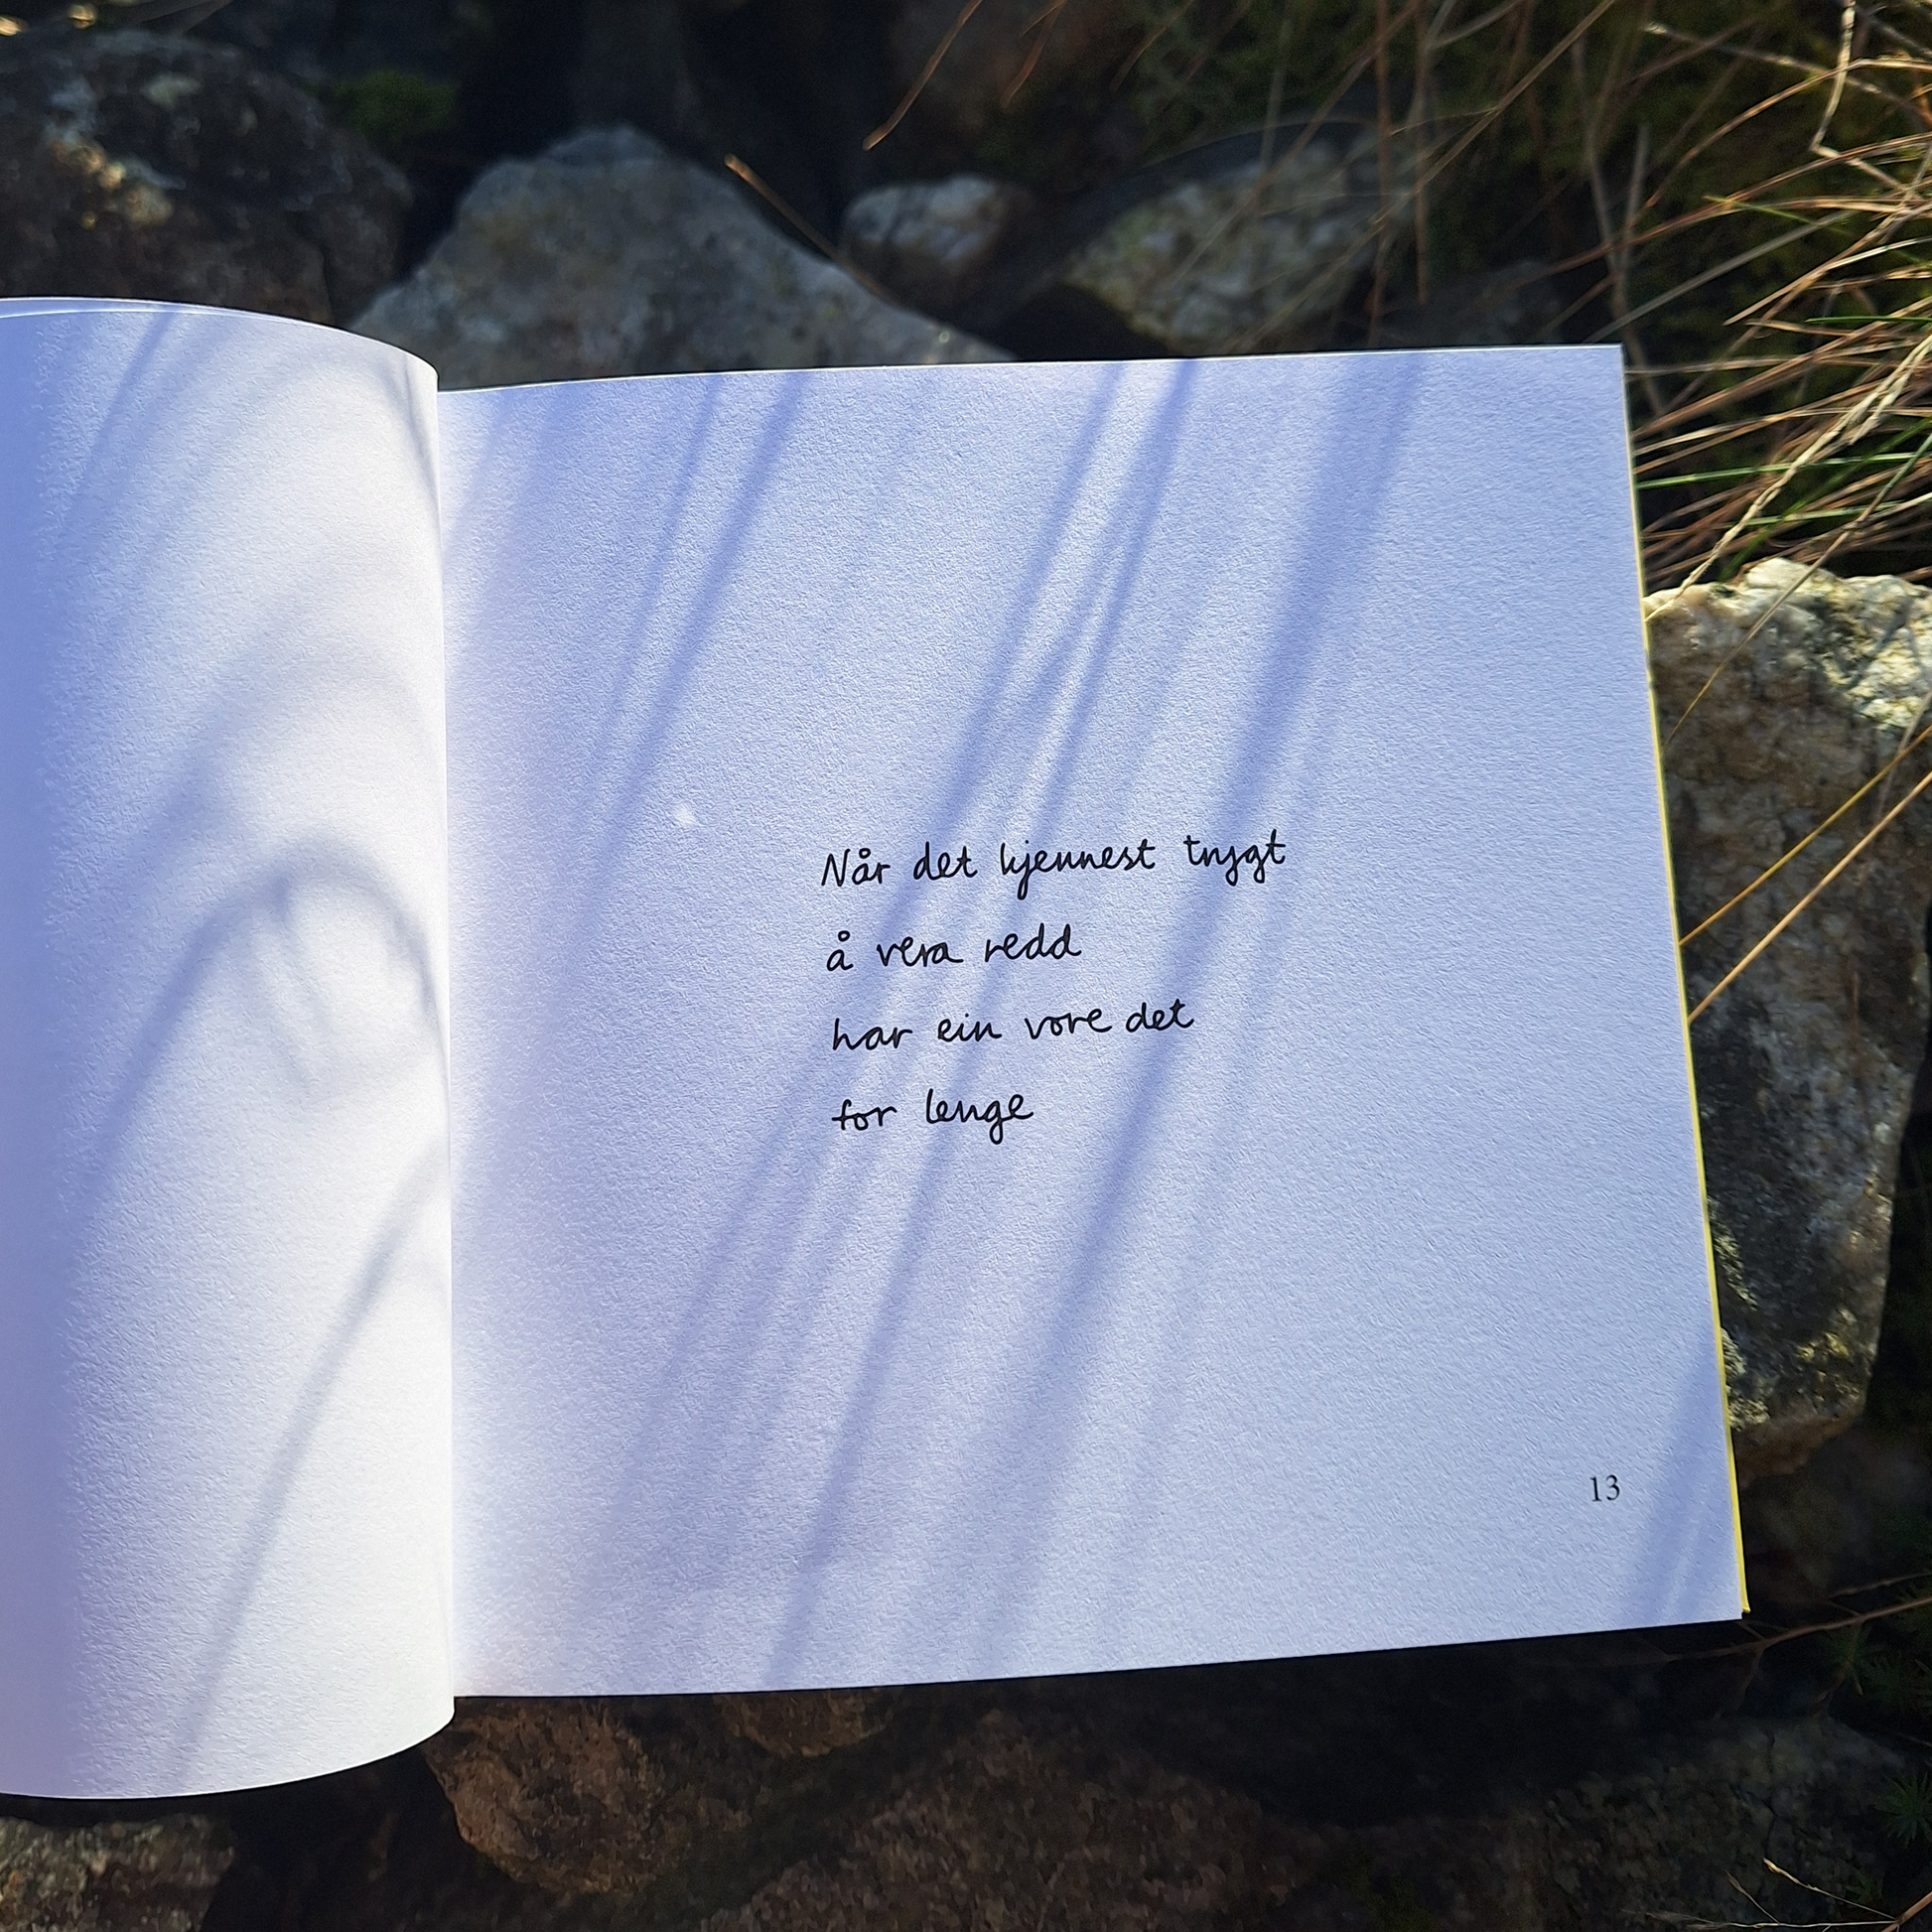 Når det kjennest trygt
å vera redd
har ein vore det
for lenge
13